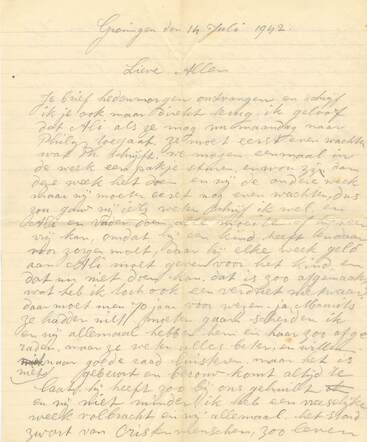 Groningen den 14 Juli 1942.
Lieve Allen
Je brief hedenmorgen ontvangen, en schrijf
ik je ook maar direkt terug ik geloof
dat Ali als ze mag nu maandag naar
Philip toegaat, ze moet eerst even wachten
wat Ph. schrijft. we mogen eenmaal in
de week een pakje sturen, en wou zij dan
deze week het doen en wij de andere week
maar wij moeten eerst nog even wachten, dus
zoo gauw wij iets weten schrijf ik wel
Ali en vader doen
vrij kan, omdat hij een kind heeft
voor zorgen moet, daar hij elke week geld
aan Ali moet geven voor het kind en
dat an niet doen kan, dat is zoo afgemaakt
wat heb ik toch ook een verdriet
daar moet men 70 jaar voor wezen. ja
ze hadden niet moeten gaan
en wij allemaal hebben hem en haar zoo afge
raden, maar ze weten alles beter, en willen
naar goede raad luisteren, maar het is
niets gebeurt en berouw komt altijd te
laat, hij heeft zoo bij ons gehuild
en wij niet minder ik heb een vreeselijke
week volbracht en wij allemaal, het stond
zwart van Cristenmenschen, zoo leven